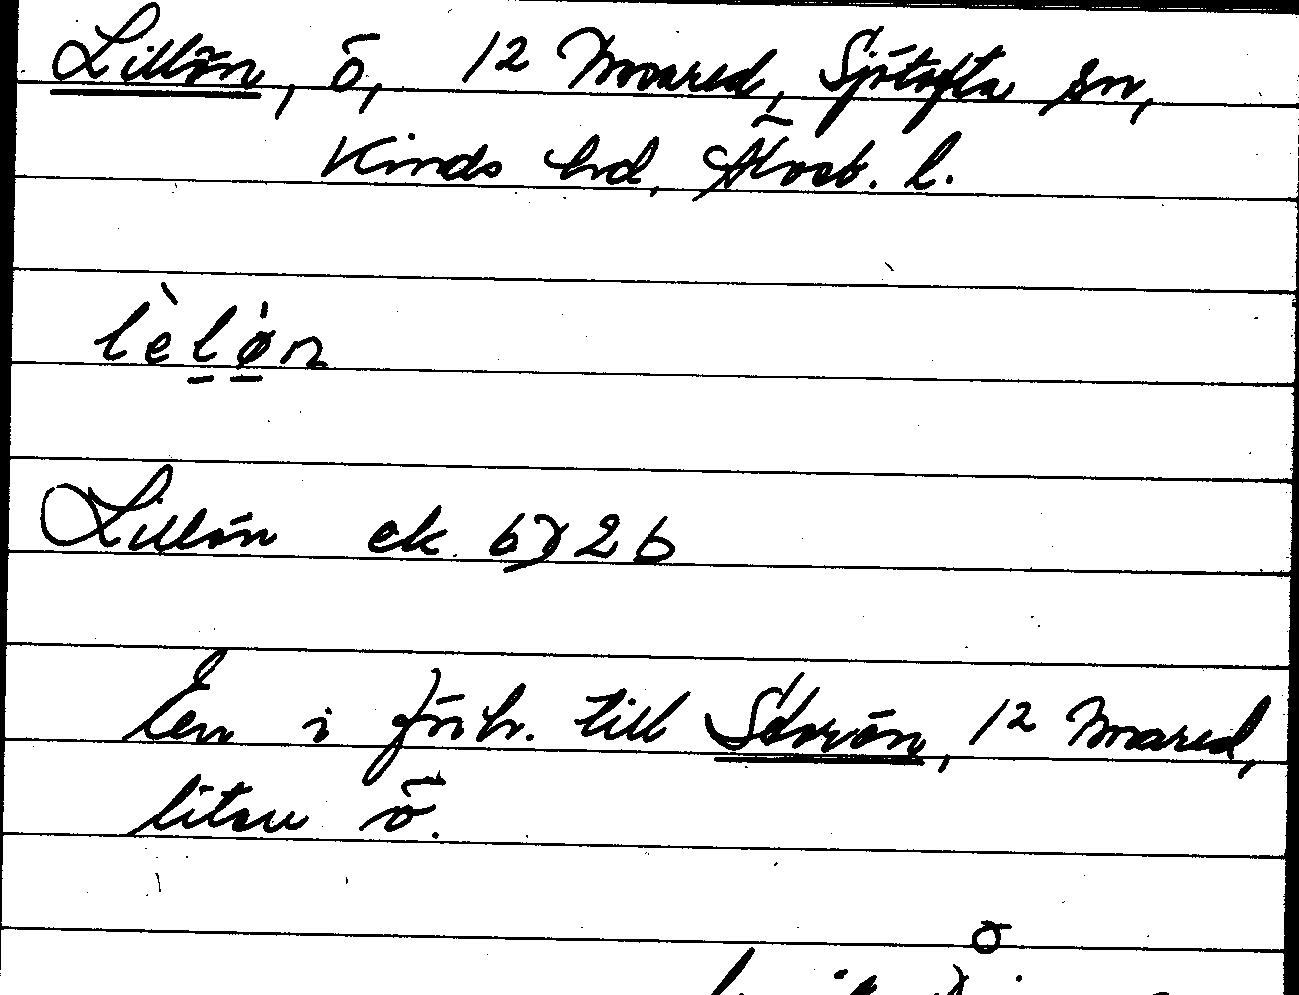 Lillön, ö, 12 Moared, Sjötofta sn,
Kinds hd, Älvsb. l.
lèlø̀n
Lillön ek 6726
En i förh. till Storön, 12 Moared,
liten ö.